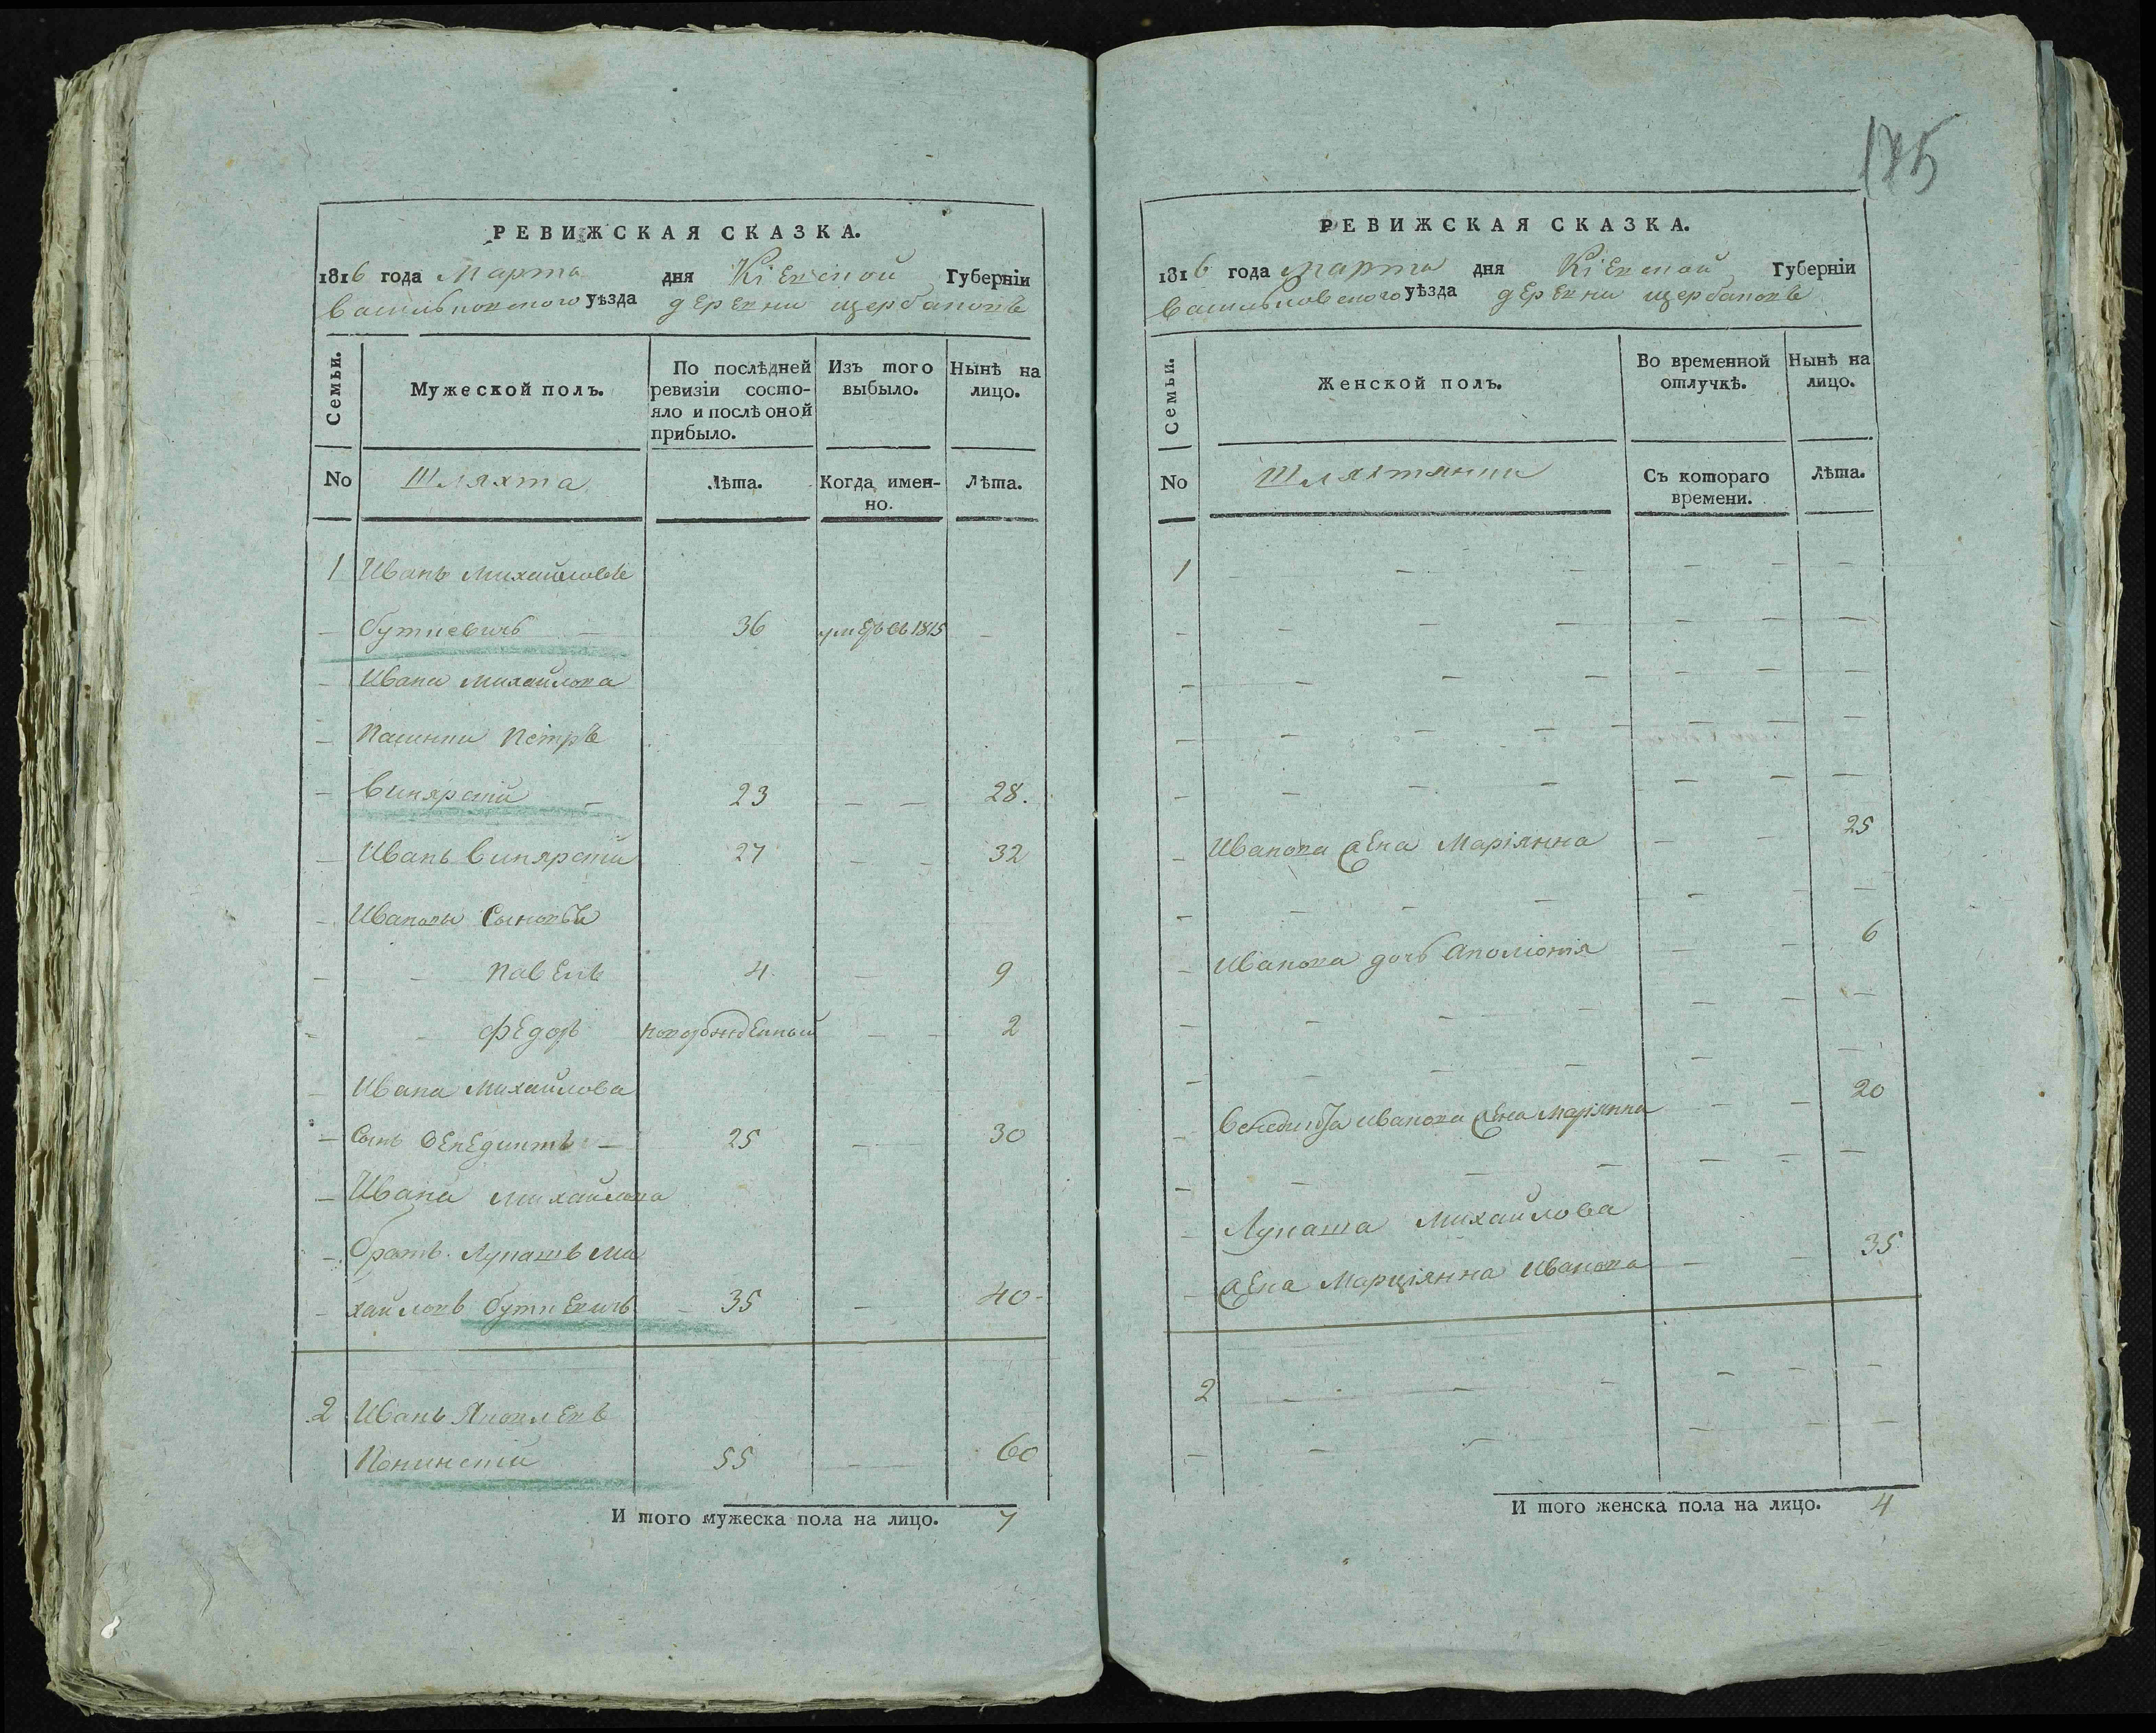 РЕВИЖСКАЯ СКАЗКА.
1816 года Марта дня Кіевской Губерніи
Васильковского уѣзда деревни щербаковъ
Семьи.
Мужеской полъ.
По послѣдней ревизіи состо-
яло и послѣ оной
прибыло.
Изъ того
выбыло.
Нынѣ на
лицо.
No Шляхта Лѣта. Когда имен-
но. Лѣта.
1 Иванъ Михайловъ
Буткевичъ 36 умеръ въ 1815
Ивана Михайлова
Петръ
Винярскій 23 28.
Иванъ Винярскій 27 32
Ивановы Сыновья
Павелъ 4 9
Федоръ новорожденный 2
Ивана Михайлова
Сынъ Венедиктъ 25 30
Ивана Михайлова
братъ Лукашъ Ми
хайловъ Буткевичъ 35 40
2 Иванъ Яковлевъ
Понинскій 55 60
И того мужеска пола на лицо. 7
175
РЕВИЖСКАЯ СКАЗКА.
1816 года марта дня Кіевской Губерніи
Васильковского уѣзда деревни щербаковъ
Семьи.
Женской полъ.
Во временной
отлучкѣ.
Нынѣ на
лицо.
No Шляхтянки Съ котораго
времени. Лѣта.
1
Иванова жена Маріянна 25
Иванова дочь Аполіонія 6
Иванова жена Маріянна 20
Лукаша Михайлова
жена Марціянна Иванова 35
2
И того женска пола на лицо. 4